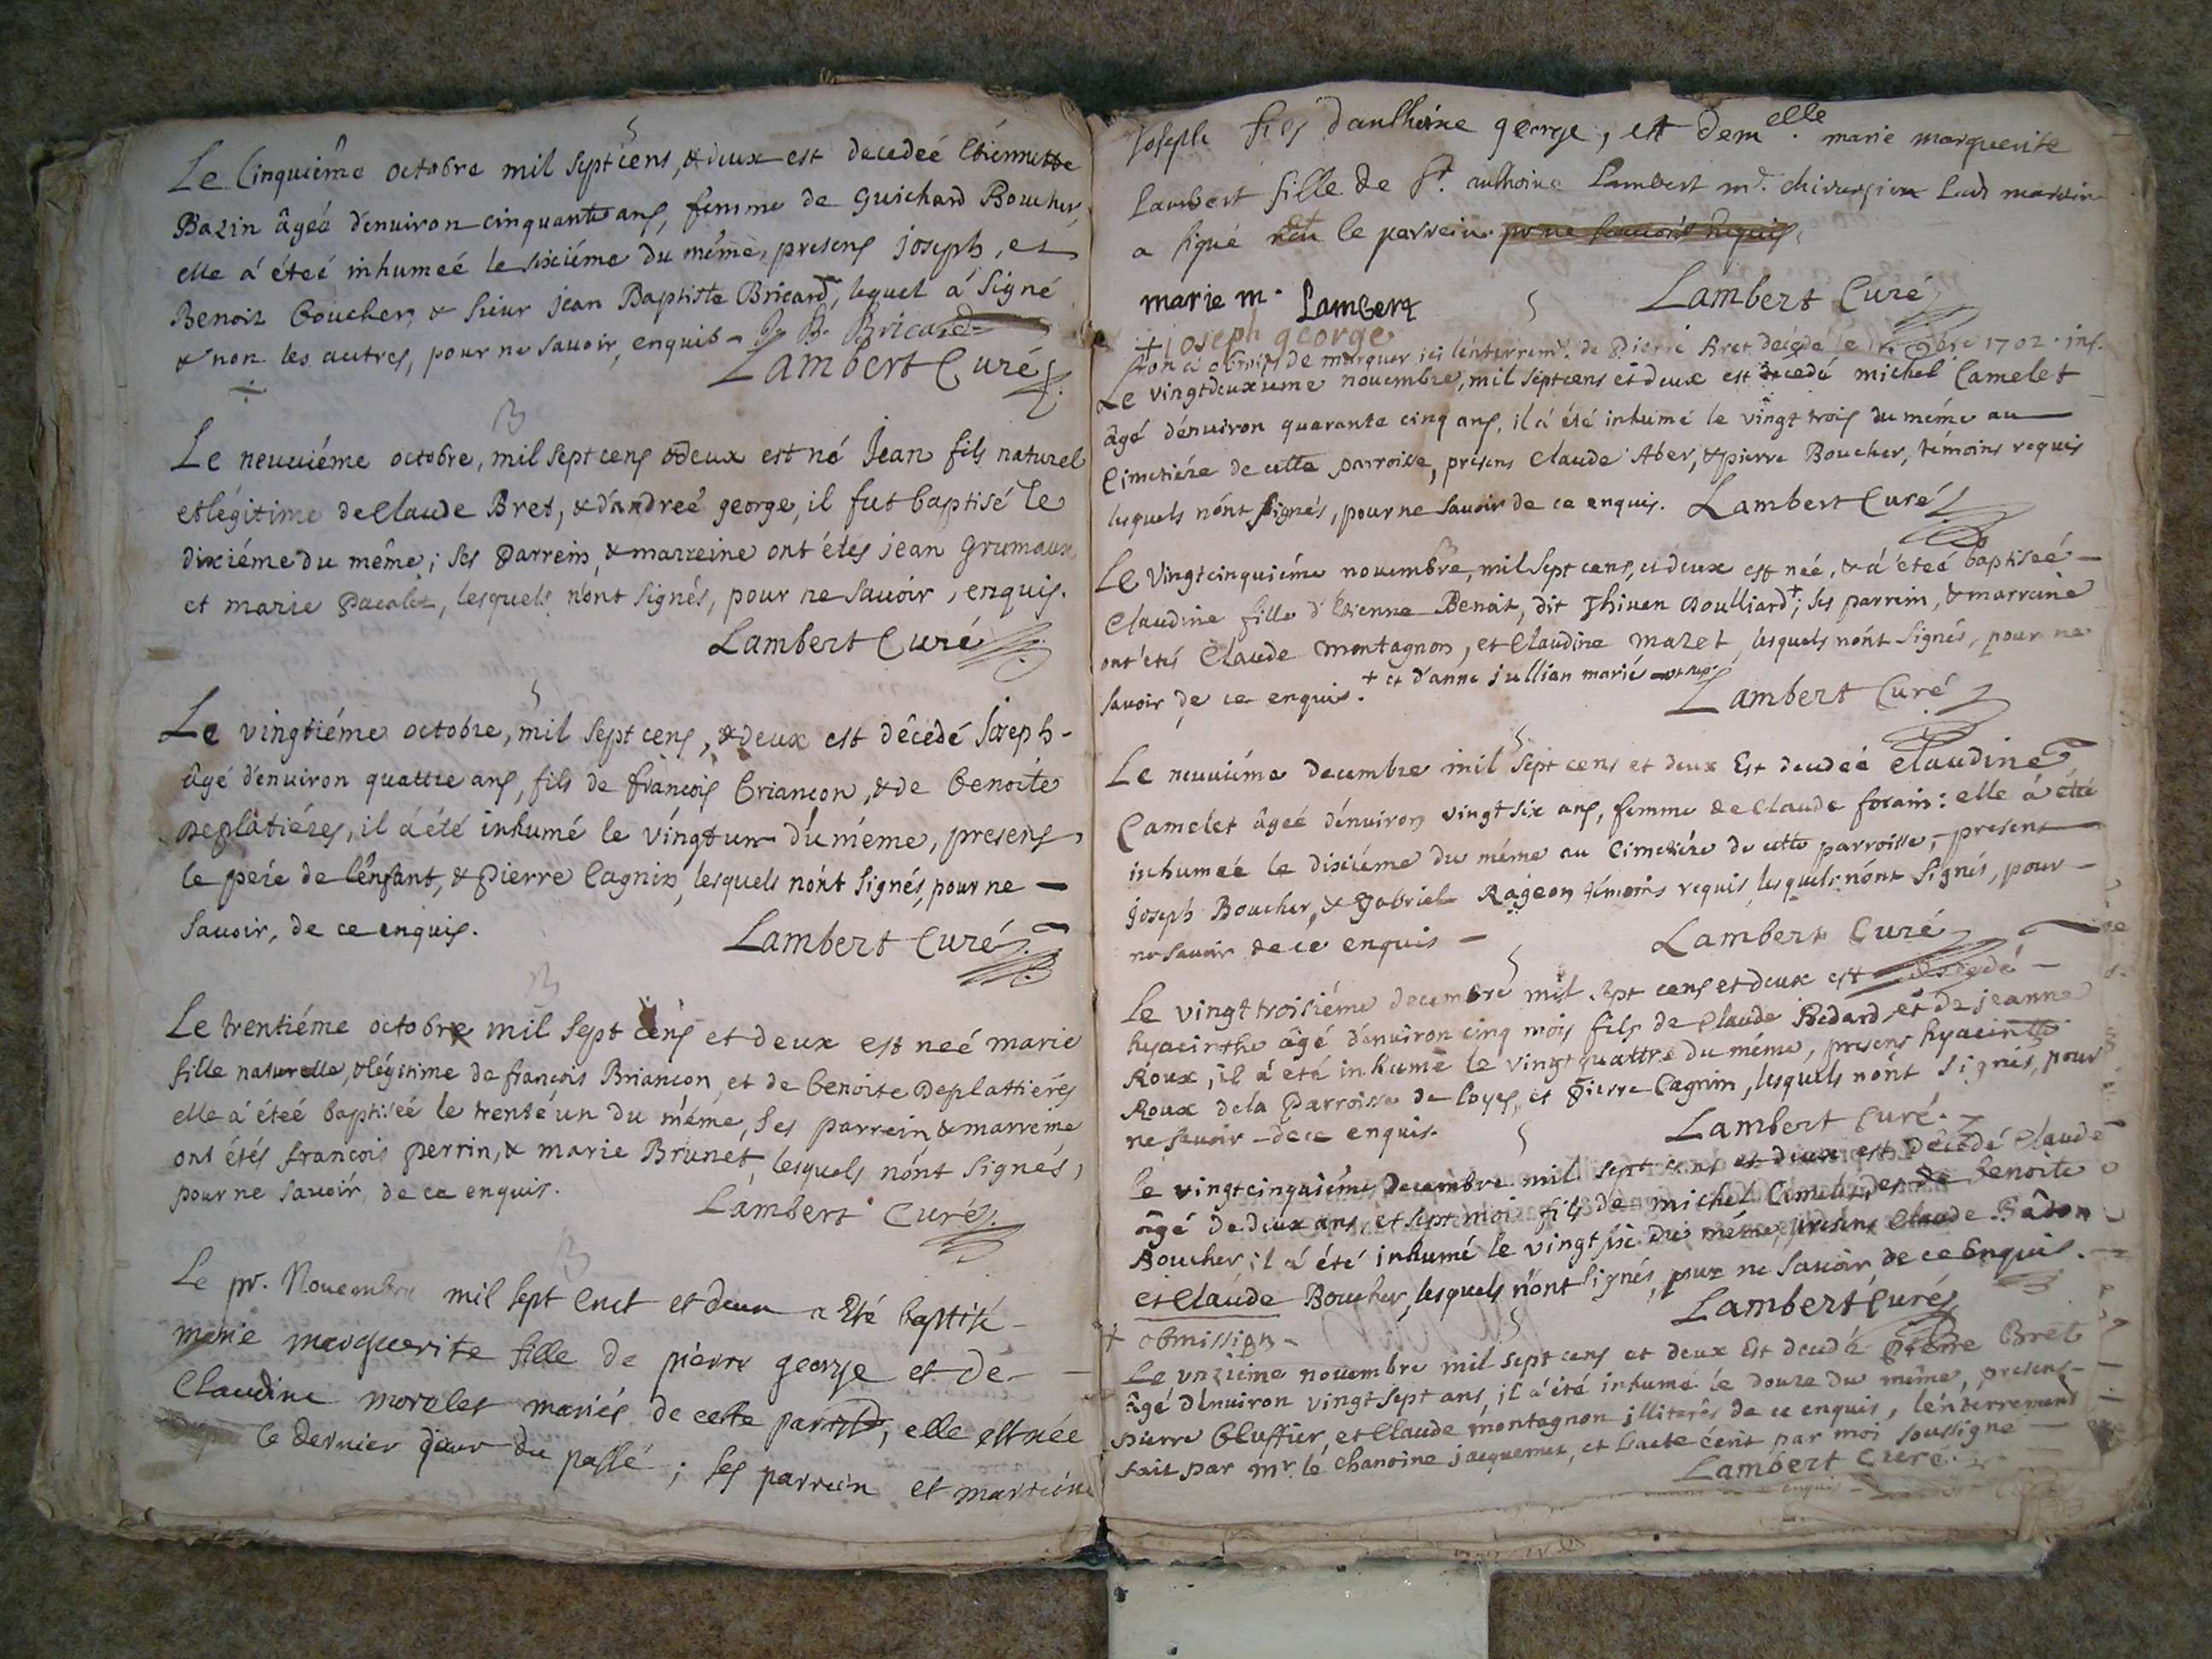 Le Cinquiéme octobre mil sept cens, & deux est decedeé Etiennette
Bazin âgeé d'enuiron cinquante ans, femme de Guichard Boucher,
elle á éteé inhumeé le sixiéme du méme, presens joseph, et
Benoit boucher, & sieur jean Baptiste Bricard, lequel á signé
& non les autres, pour ne sauoir, enquis – J. B. Bricard
Lambert Curé
B
Le neuuiéme octobre, mil sept cens & deux est né Jean fils naturel
et légitime de Claude Bret, & d'andreé george, il fut baptisé le
dixiéme du même; ses parrein, & marreine ont étés jean Grumaux
et marie Pacalet, lesquels n'ont signés, pour ne sauoir, enquis.
Lambert Curé
Le vingtiéme octobre, mil sept cens, & deux est décédé Joseph-
âgé d'enuiron quattre ans, fils de françois briancon, & de benoite
Deplâtiéres, il á été inhumé le vingt un du méme, presens,
le pere de l'enfant, & Pierre Cagnin, lesquels n'ont signés, pour ne –
sauoir, de ce enquis.
Lambert Curé
B
Le trentiéme octobre mil sept cens et deux est neé marie
fille naturelle, & légitime de francois Briancon, et de benoite Deplattiéres
elle á éteé baptiseé le trente un du même, ses parrein & marreine
ont étés francois perrin, & marie Brunet, lesquels n'ont signés,
pour ne sauoir de ce enquis.
Lambert Curé
B
Le pr. Nouembre mil sept cent et deux a Eté baptisé –
marie marguerite fille de pierre george et de –
Claudine morelet mariés de cette par, elle est née
le dernier jour du passé; ses parrein et marreine
Joseph fils d'anthoine george, et dem.elle marie marguerite
Lambert fille de Sr. anthoine Lambert md. chirurgien lad marreine
a signé le parrein.
marie m. Lambert
Lambert Curé
+ joseph george
on a obmis de marquer ici l'enterremt. de Pierre Bret décédé le 1702.
Le vingtdeuxieme nouembre, mil sept cens et deux est decedé michel Camelet
âgé d'enuiron quarante cinq ans, il á été inhumé le vingt trois du méme au
Cimetiére de cette parroisse, présens Claude Aber, & pierre Boucher, témoins requis
lesquels n'ont signés, pour ne sauoir de ce enquis. Lambert Curé
B
Le Vingtcinquiéme nouembre, mil sept cens, et deux est neé, & á éteé baptiseé –
Claudine fille d'Etienne Benoit, dit Thiuen Doulliard+; ses parrein, & marreine
ont étés Claude montagnon, et Claudine mazet, lesquels n'ont signés, pour ne
sauoir de ce enquis. + et d'anne jullian mariés
Lambert Curé
Le neuuiéme decembre mil sept cens et deux Est decedeé Claudine
Camelet âgeé d'enuiron vingt six ans, femme de Claude forain: elle á été
inhumeé le dixiéme du méme au Cimetiére de cette parroisse, – presens
joseph Boucher, & gabriel Rageon témoins requis, lesquels n'ont signés, pour –
ne sauoir de ce enquis –
Lambert Curé
Le vingt troisiéme decembre mil sept cens et deux est decedé –
hyacinthe âgé d'enuiron cinq mois fils de Claude Bedard, et de jeanne
Roux, il á été inhumé le vingt quattre du méme, presens hyacinthe
Roux dela Parroisse de loyes, et Pierre Cagnin, lesquels n'ont signés, pour
ne sauoir – de ce enquis.
Lambert Curé.
Le vingtcinquiéme decembre mil sept cens et deux est décédé Claude
âgé de deux ans, et sept mois fils de michel Camelet, et de benoite
Boucher, il á été inhumé le vingt six du méme, presens Claude Bâdon
et Claude Boucher, lesquels n'ont signés, pour ne sauoir de ce enquis.
Lambert Curé
+ obmission –
Le unzieme nouembre mil sept cens et deux Est decedé Pierre Bret
âgé d'enuiron vingt sept ans, il á été inhumé le douze du même, presens –
pierre Gluffier, et Claude montagnon illiterés de ce enquis, l'enterrement
fait par mr. le Chanoine jacquemet, et l'acte écrit par moi soussigné –
Lambert Curé.